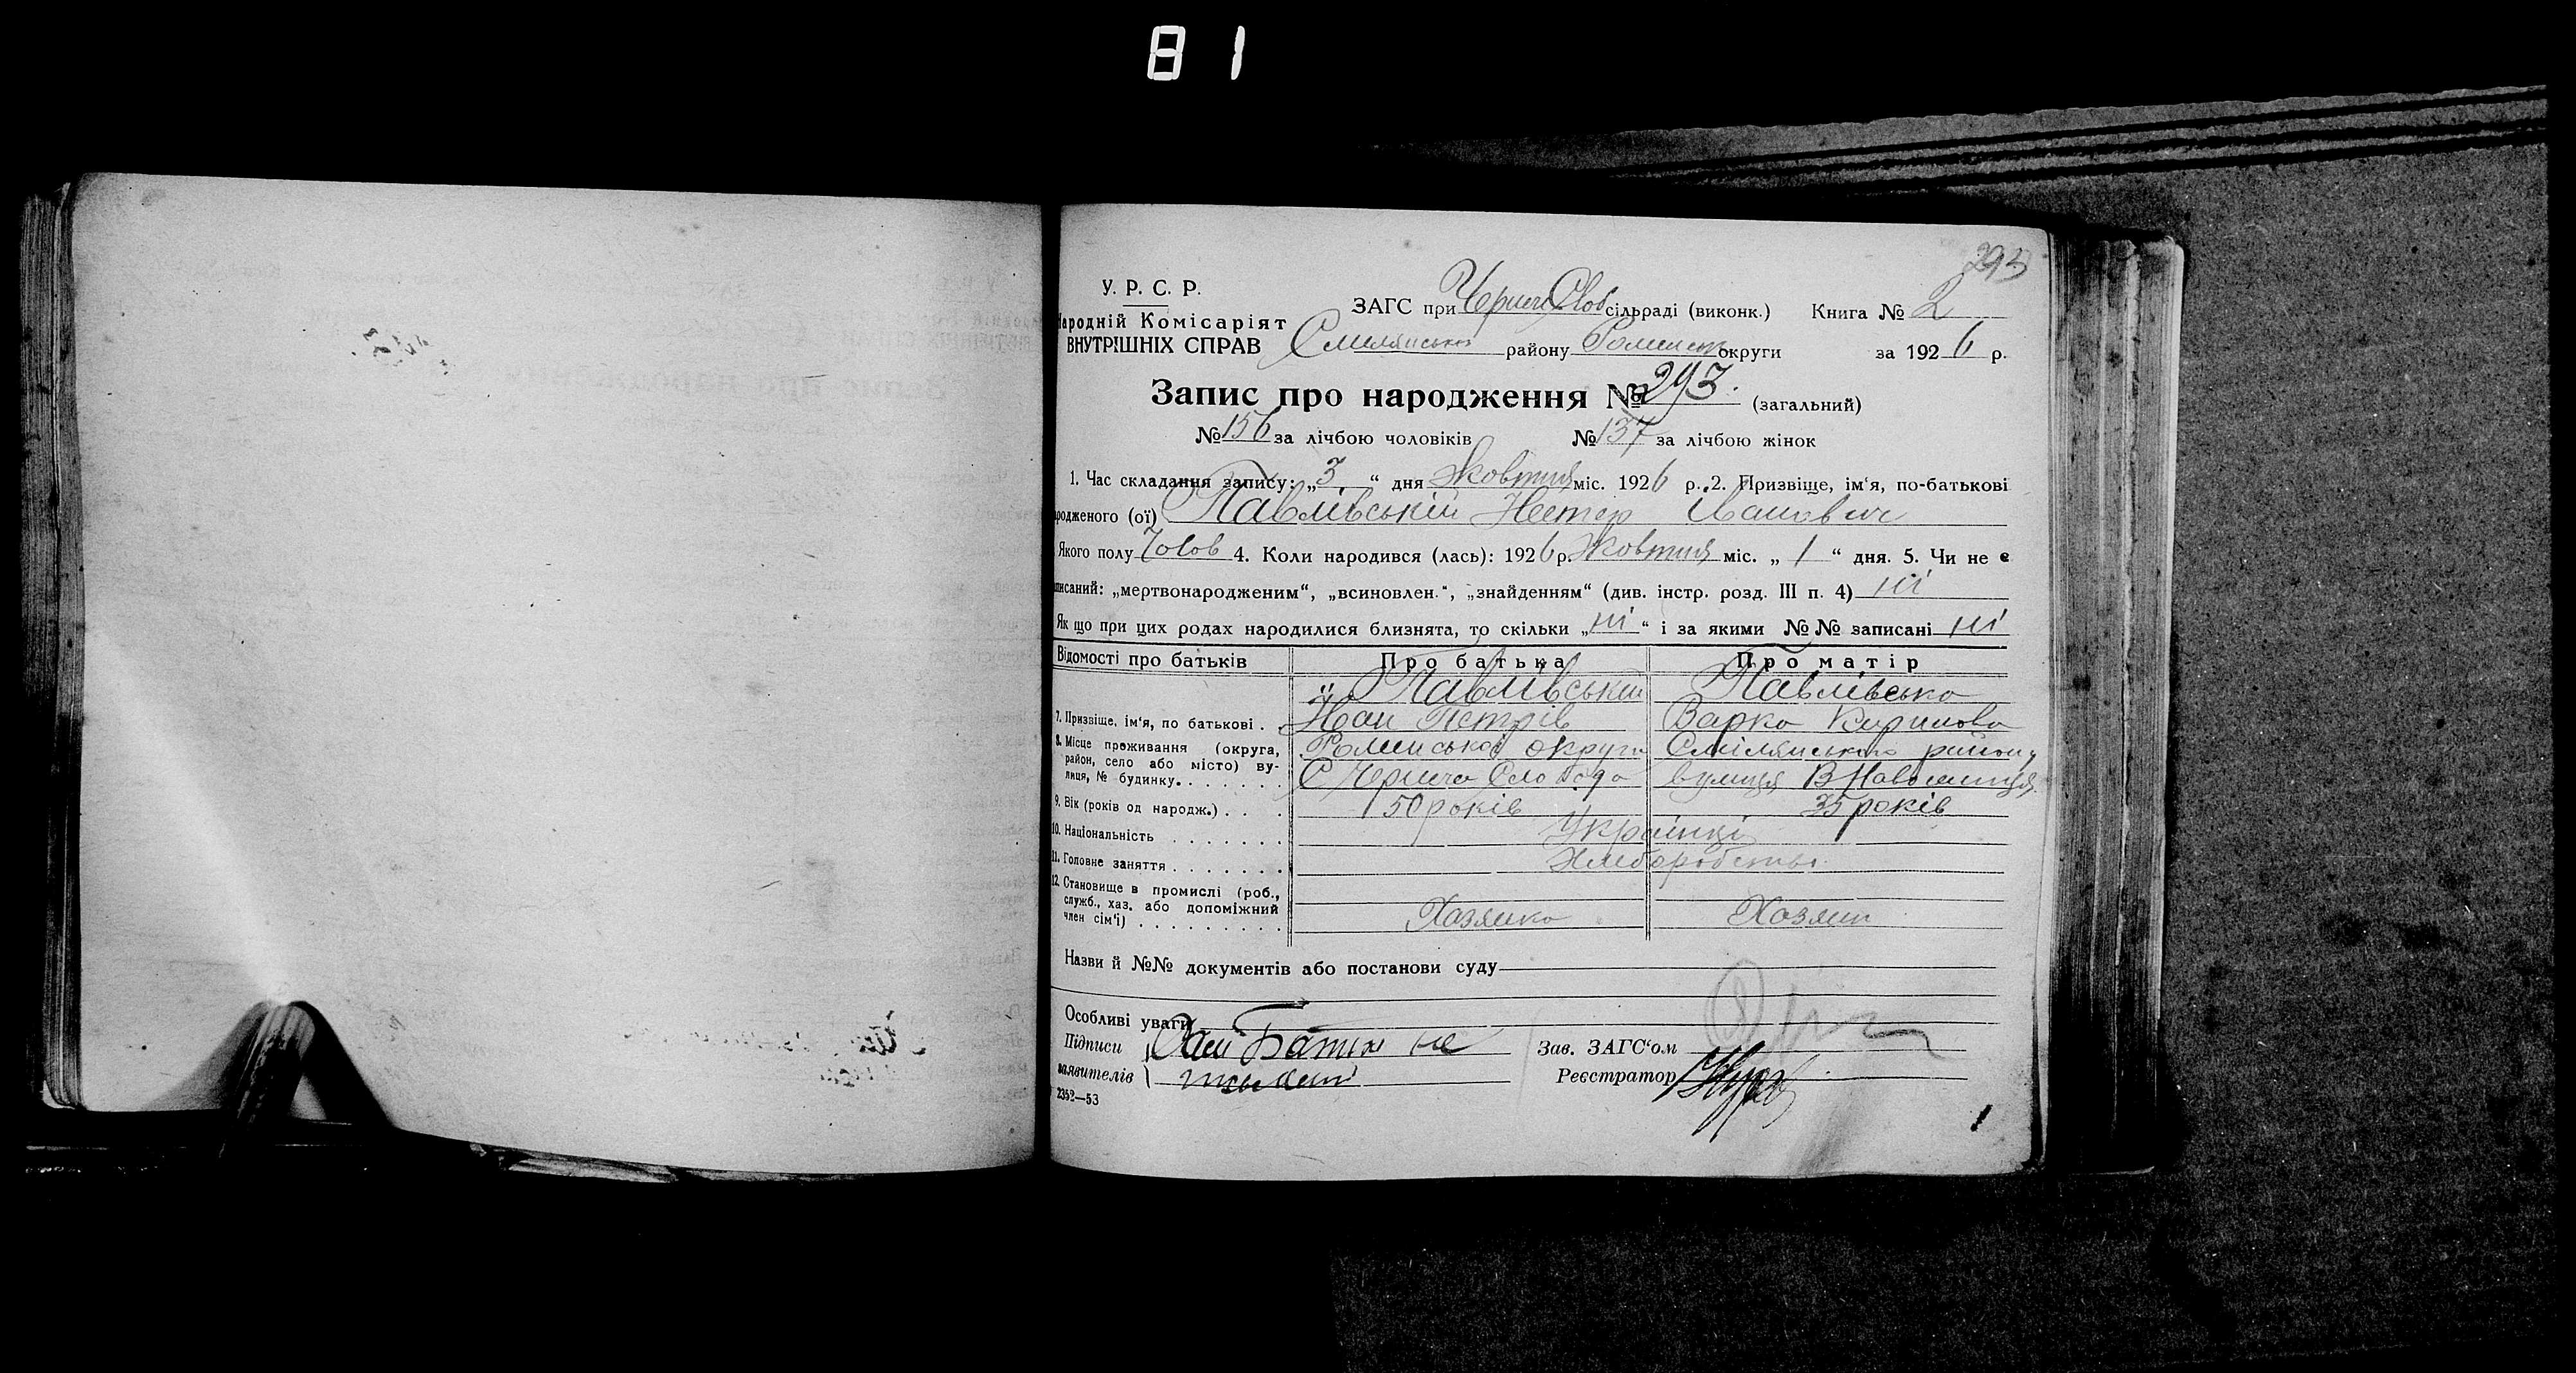 81
293
У. Р. С. Р.
Народній Комісаріят
ВНУТРІШНІХ СПРАВ
ЗАГС при Чернеч Слоб сільраді (виконк.) Книга № 2
Смилянсько району Роменск округи за 1926 р.
Запис про народження № 293. (загальний)
№ 156 за лічбою чоловіків № 137 за лічбою жінок
1. Час складання запису: „3“ дня Жовтня міс. 1926 р. 2. Призвіще, ім‘я, по-батькові
родженого (ої) Павлівській Нестер Іванович
Якого полу Чолов 4. Коли народився (лась): 1926 р. Жовтня міс. „1“ дня. 5. Чи не є
писаний: „мертвонародженим“, „всиновлен.“, „знайденням“ (див. інстр. розд. III п. 4) ні
Як що при цих родах народилися близнята, то скільки „ні“ і за якими №№ записані ні
Відомості про батьків Про батька Про матір
Павлівській Павлівсько
7. Призвіще, ім‘я, по батькові . Іван Петрів Варка Кирилова
8. Місце проживання (округа, район, село або місто) вулиця, № будинку. Роменської округи Смілянського району
С Чернеча Слобода вулиця
9. Вік (років од народж.) . . . 50 років 35 років
10. Національність . . . . . . . Українці
11. Головне заняття . . . . . . . Хліборобство
12. Становище в промислі (роб.,
служб., хаз. або допоміжний
член сім‘ї) . . . . . . . . . Хазяйка Хазяин
Назви й №№ документів або постанови суду
Особливі уваги
Підписи Батько не Зав. ЗАГС‘ом
заявителів Реєстратор
2352—53